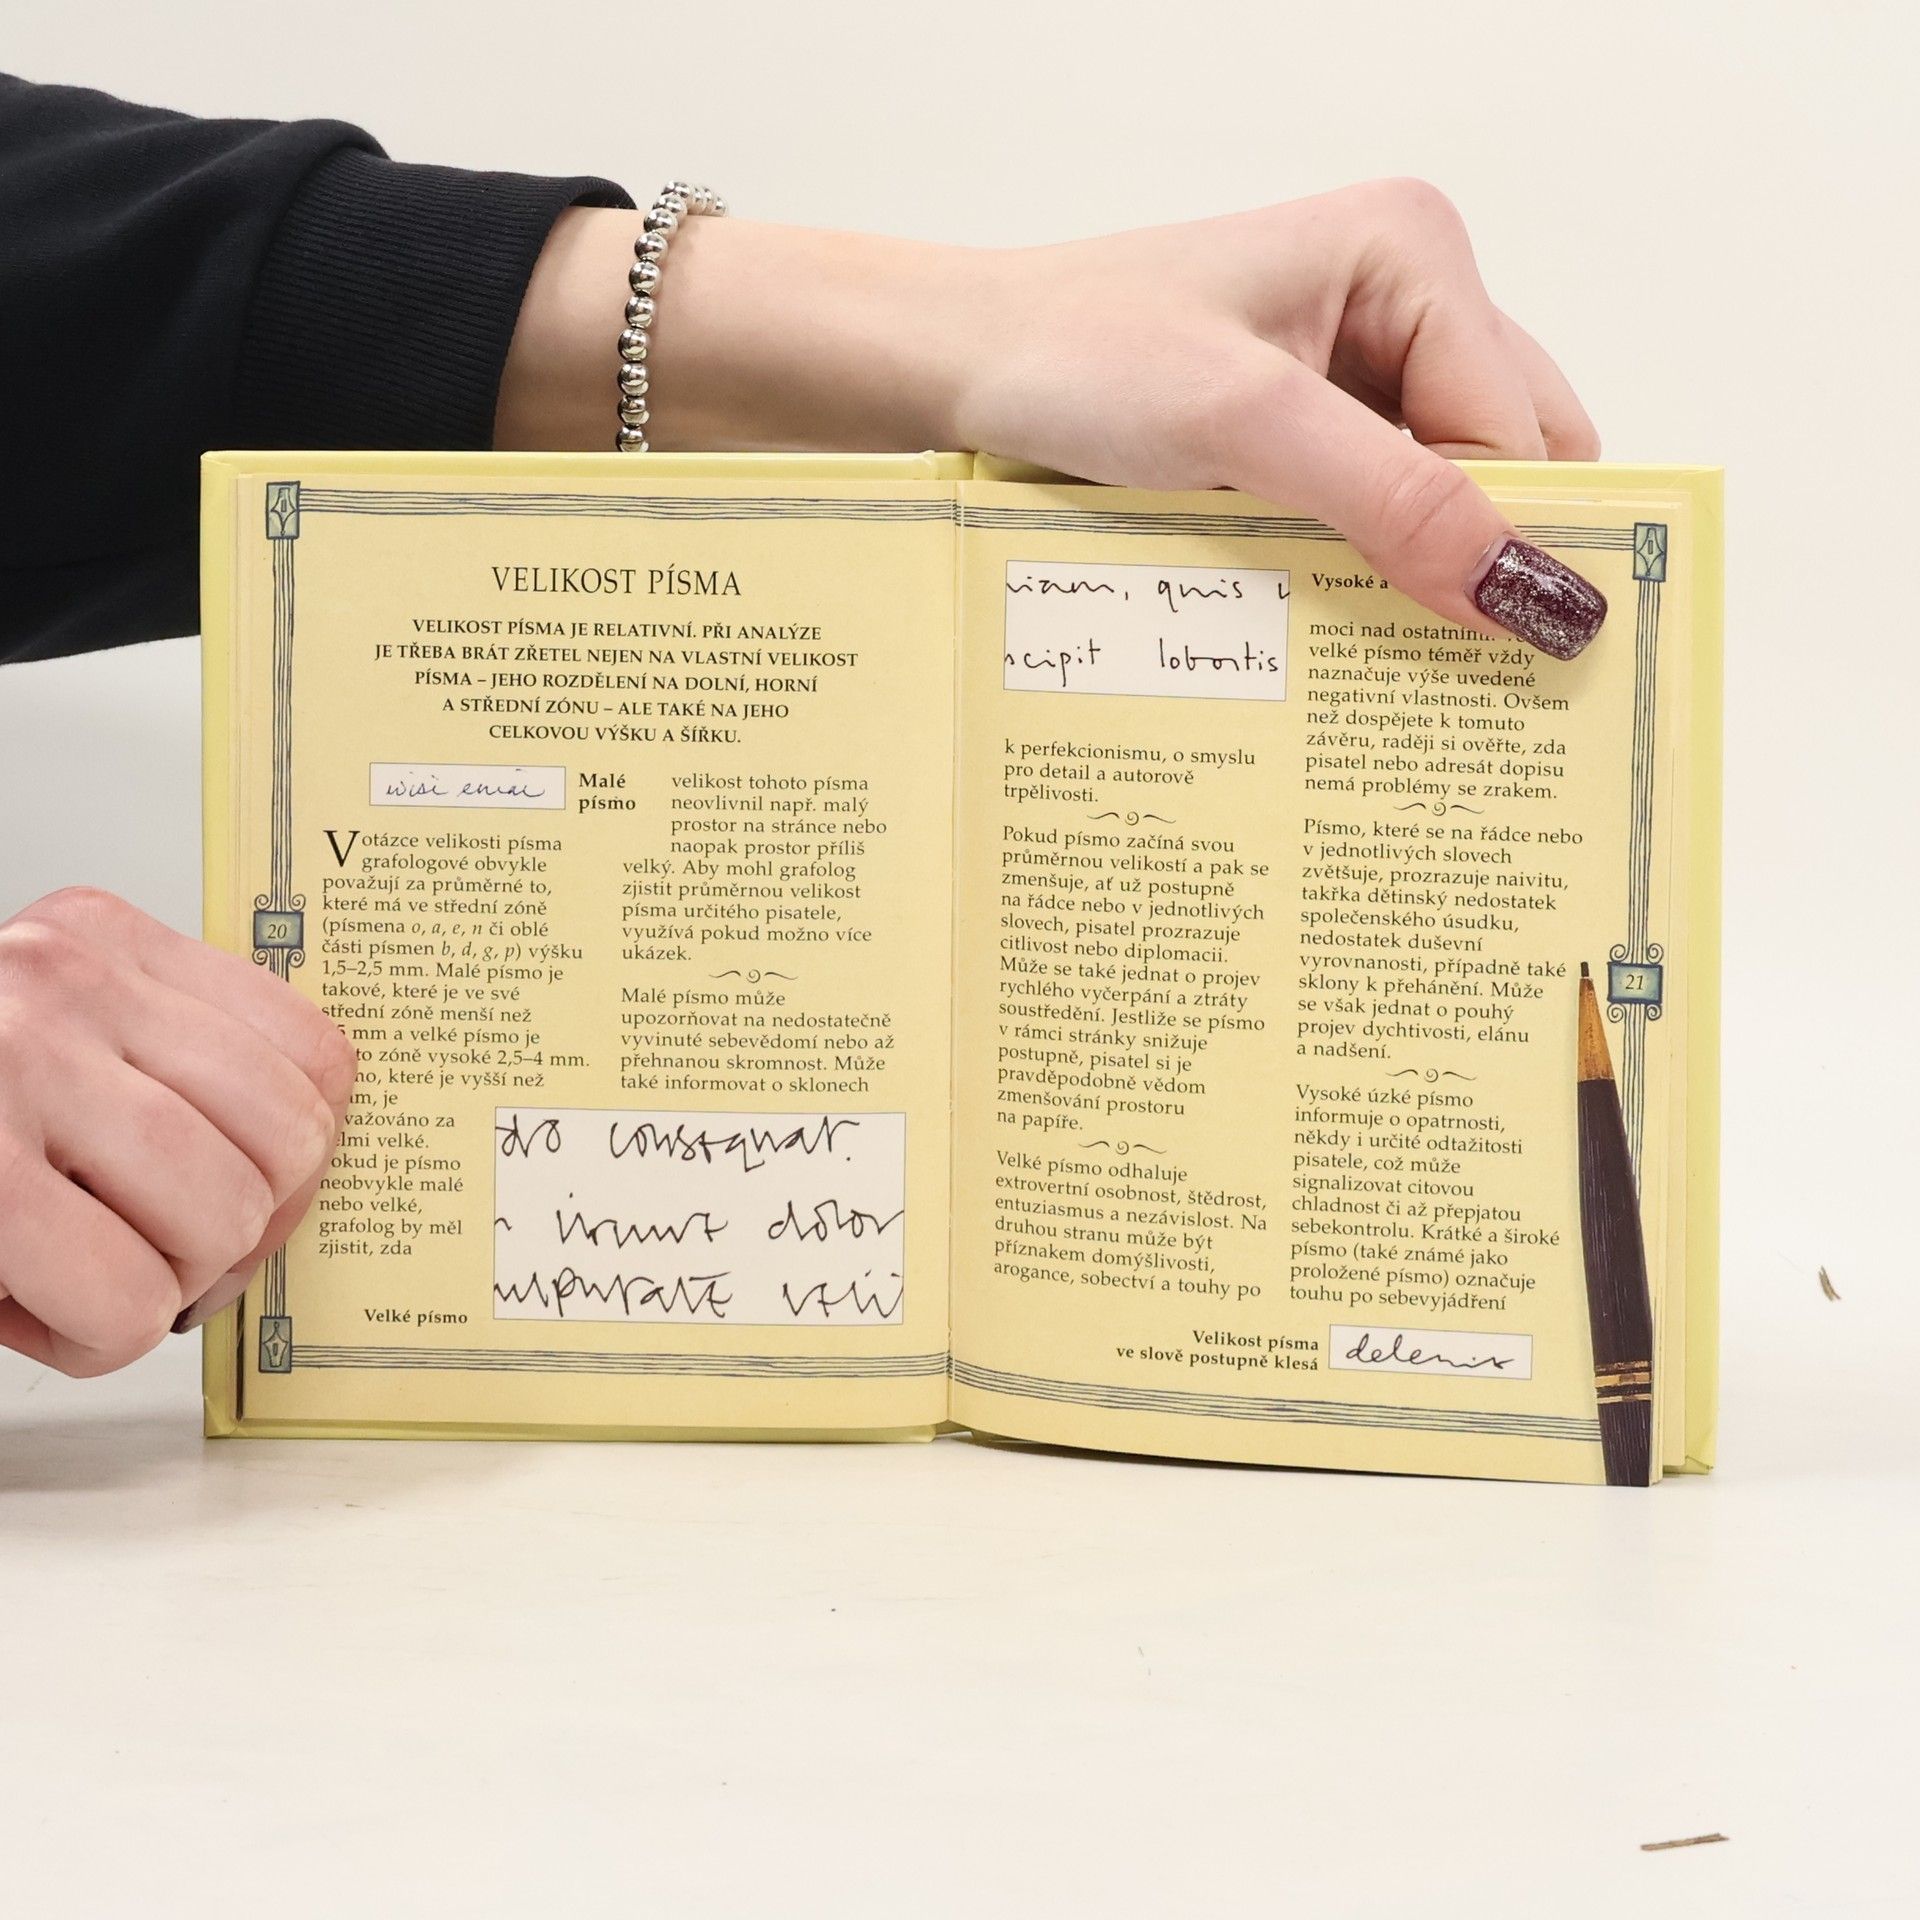 VELIKOST PÍSMA
VELIKOST PÍSMA JE RELATIVNÍ. PŘI ANALÝZE
JE TŘEBA BRÁT ZŘETEL NEJEN NA VLASTNÍ VELIKOST
PÍSMA – JEHO ROZDĚLENÍ NA DOLNÍ, HORNÍ
A STŘEDNÍ ZÓNU – ALE TAKÉ NA JEHO
CELKOVOU VÝŠKU A ŠÍŘKU.
wisi enim
Malé
písmo
V otázce velikosti písma
grafologové obvykle
považují za průměrné to,
které má ve střední zóně
(písmena o, a, e, n či oblé
části písmen b, d, g, p) výšku
1,5–2,5 mm. Malé písmo je
takové, které je ve své
střední zóně menší než
mm a velké písmo je
zóně vysoké 2,5–4 mm.
které je vyšší než
je
za
velmi velké.
Pokud je písmo
neobvykle malé
nebo velké,
grafolog by měl
zjistit, zda
20
velikost tohoto písma
neovlivnil např. malý
prostor na stránce nebo
naopak prostor příliš
velký. Aby mohl grafolog
zjistit průměrnou velikost
písma určitého pisatele,
využívá pokud možno více
ukázek.
Malé písmo může
upozorňovat na nedostatečně
vyvinuté sebevědomí nebo až
přehnanou skromnost. Může
také informovat o sklonech
consequat.
dolor
Velké písmo
niam, quis
scipit lobortis
k perfekcionismu, o smyslu
pro detail a autorově
trpělivosti.
Pokud písmo začíná svou
průměrnou velikostí a pak se
zmenšuje, ať už postupně
na řádce nebo v jednotlivých
slovech, pisatel prozrazuje
citlivost nebo diplomacii.
Může se také jednat o projev
rychlého vyčerpání a ztráty
soustředění. Jestliže se písmo
v rámci stránky snižuje
postupně, pisatel si je
pravděpodobně vědom
zmenšování prostoru
na papíře.
Velké písmo odhaluje
extrovertní osobnost, štědrost,
entuziasmus a nezávislost. Na
druhou stranu může být
příznakem domýšlivosti,
arogance, sobectví a touhy po
Vysoké a
moci nad ostatními.
velké písmo téměř vždy
naznačuje výše uvedené
negativní vlastnosti. Ovšem
než dospějete k tomuto
závěru, raději si ověřte, zda
pisatel nebo adresát dopisu
nemá problémy se zrakem.
Písmo, které se na řádce nebo
v jednotlivých slovech
zvětšuje, prozrazuje naivitu,
takřka dětinský nedostatek
společenského úsudku,
nedostatek duševní
vyrovnanosti, případně také
sklony k přehánění. Může
se však jednat o pouhý
projev dychtivosti, elánu
a nadšení.
Vysoké úzké písmo
informuje o opatrnosti,
někdy i určité odtažitosti
pisatele, což může
signalizovat citovou
chladnost či až přepjatou
sebekontrolu. Krátké a široké
písmo (také známé jako
proložené písmo) označuje
touhu po sebevyjádření
21
Velikost písma
ve slově postupně klesá
delenit